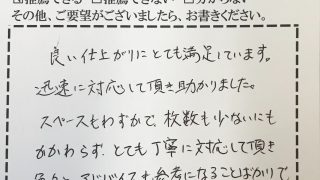 推薦できる □推薦できない □分からない
その他、ご要望がございましたら、お書きください。
良い仕上がりにとても満足しています。
迅速に対応して頂き助かりました。
スペースもわずかで、枚数も少ないにも
かかわらず、とても丁寧に対応して頂き
アドバイスも参考になることばかりで